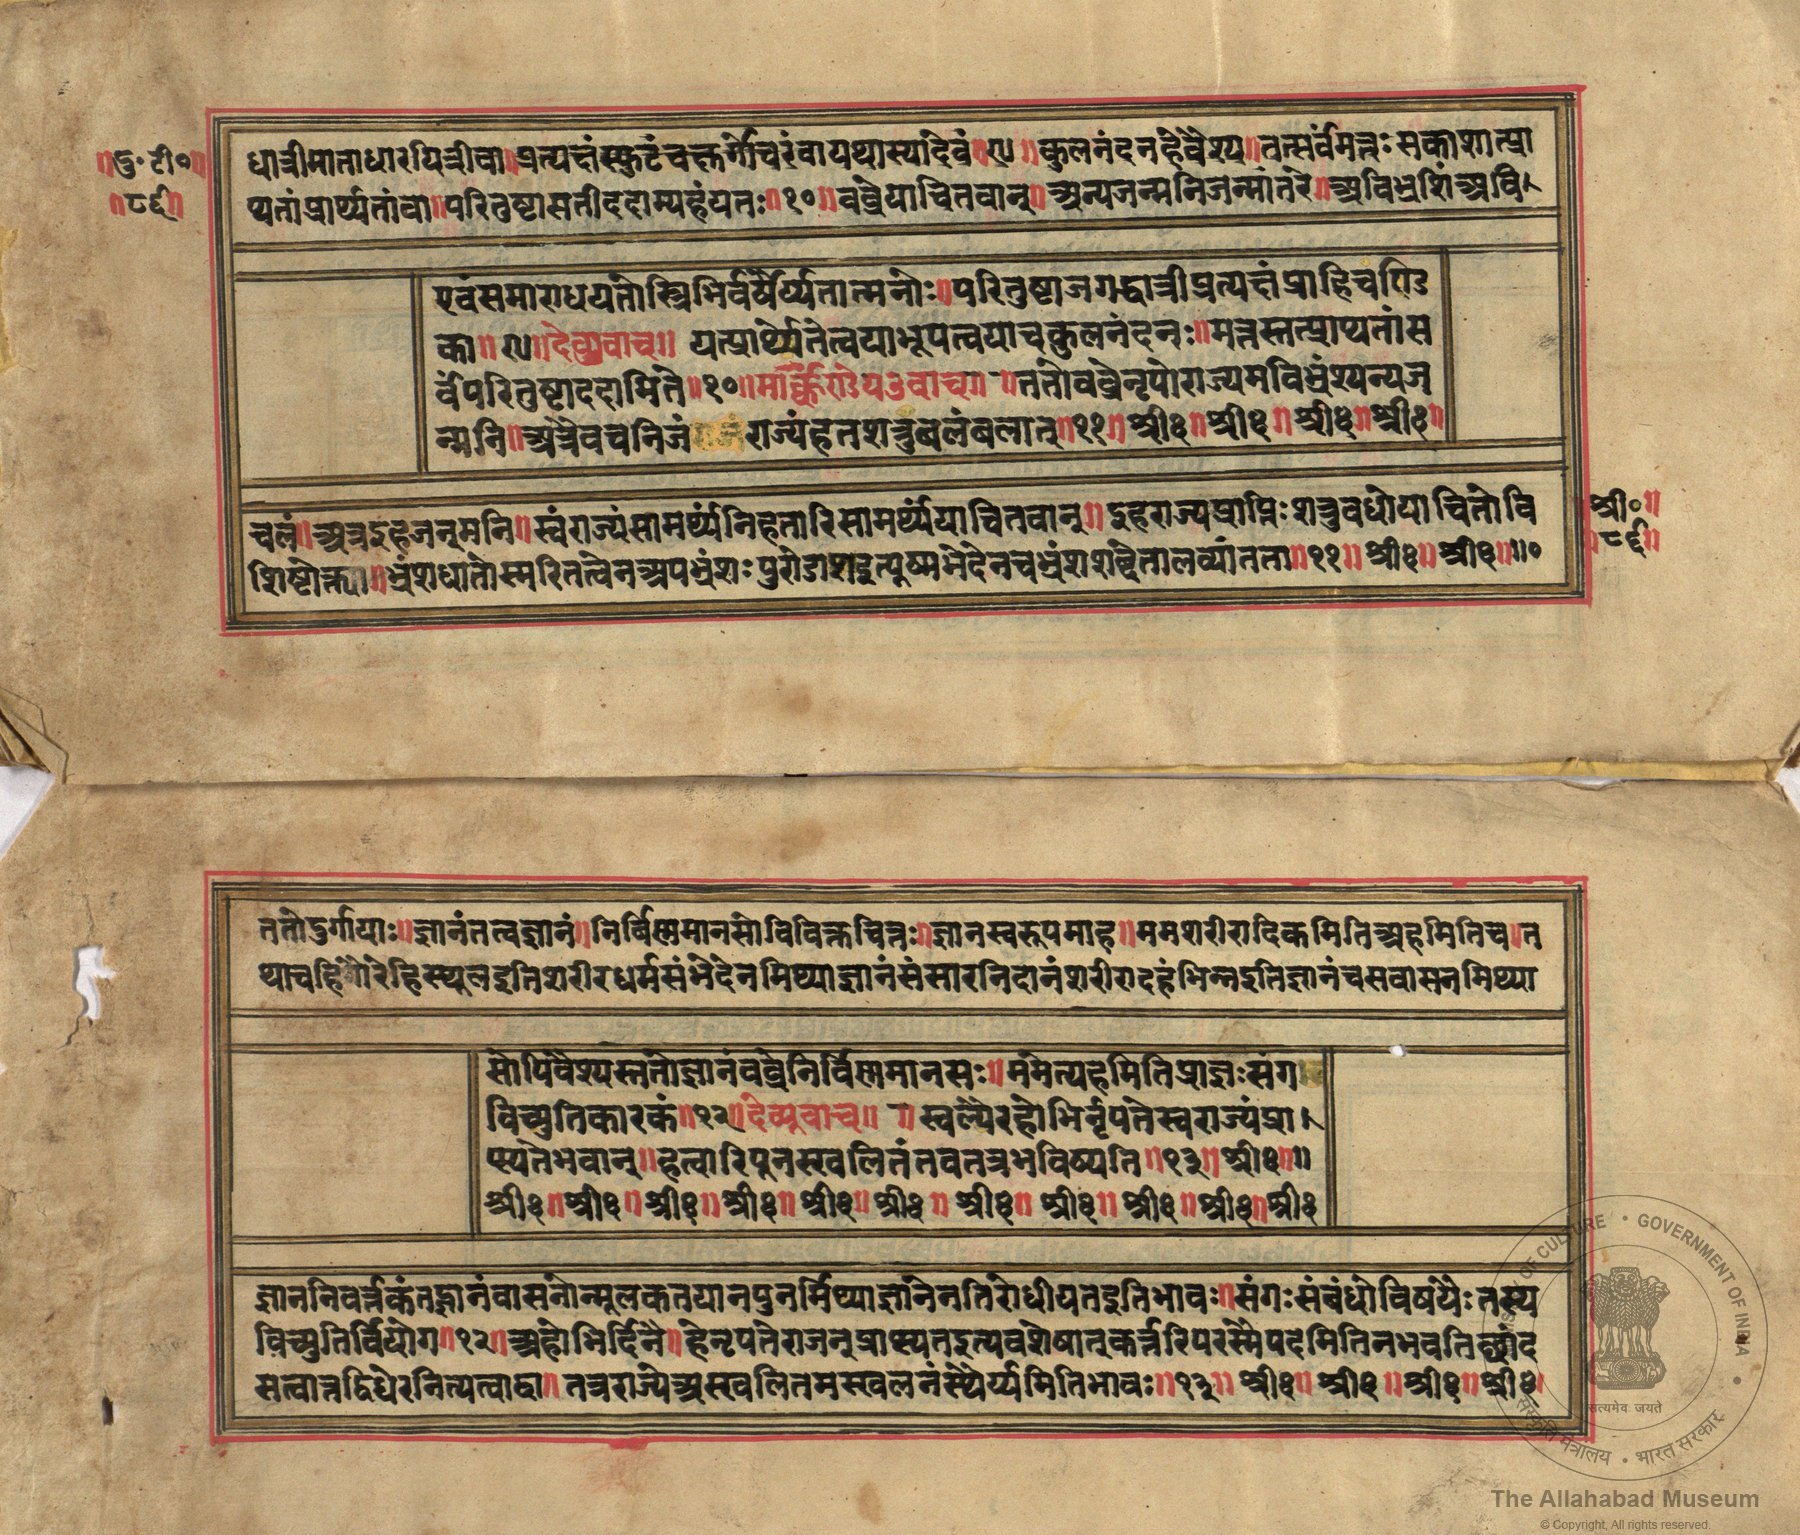 ॥दु॰टी॰॥
॥८६॥
धात्रीमाताधारयित्रीवा॥प्रत्यक्षंस्फुटंचक्षुर्गोचरंवायथास्यादेवं॥९॥॥कुलनंदनहेवैश्य॥वत्सर्वंमत्तःसकाशात्प्रा
प्यतांप्रार्थ्यतांवा॥परितुष्टासतीददाम्यहंयतः॥१०॥वव्रेयाचितवान्॥अन्यजन्मनिजन्मांतरे॥अविभ्रंशिअवि
एवंसमाराधयतोस्त्रिभिर्वर्षैर्यतात्मनोः॥परितुष्टाजगद्धात्रीप्रत्यक्षंप्राहचंडि
का॥९॥देव्युवाच॥ यत्प्रार्थ्यतेत्वयाभूपत्वयाचकुलनंदन॥मत्तस्तत्प्राप्यतांस
र्वंपरितुष्टाददामिते॥१०॥मार्कंडेयउवाच॥ ॥ततोवव्रेनृपोराज्यमविभ्रंश्यन्यज
न्मनि॥अत्रैवचनिजंराज्यंहतशत्रुबलंबलात्॥११॥श्री३॥श्री३॥श्री३॥श्री३॥
चलं॥अत्रइहजन्मनि॥स्वंराज्यंसामर्थ्यंनिहतारिसामर्थ्यंयाचितवान्॥इहराज्यप्राप्तिःशत्रुवधोयाचितोवि
श्री॰॥
शिष्टोक्त्या॥भ्रंशधातोस्मरितत्वेनअपभ्रंशःपुरोडाशइत्यूष्मभेदेनचभ्रंशशब्देतालव्यांतता॥११॥श्री३॥श्री३॥॥०
॥८६॥
ततोदुर्गायाः॥ज्ञानंतत्वज्ञानं॥निर्विण्णमानसोविविक्तचित्तः॥ज्ञानस्वरूपमाह॥ममशरीरादिकमितिअहमितिच॥त
थाचहिगौरोहिस्थूलइतिशरीरधर्मसंभेदेनमिथ्याज्ञानंसंसारनिदानंशरीरादहंभिन्नइतिज्ञानंचसवासनमिथ्या
सोपिवैश्यस्ततोज्ञानंवव्रेनिर्विण्णमानसः॥ममेत्यहमितिप्राज्ञःसंग
विच्युतिकारकं॥१२॥देव्युवाच॥ ॥स्वल्पैरहोभिर्नृपतेस्वराज्यंप्रा
प्स्यतेभवान्॥हत्वारिपूनस्खलितंतवतत्रभविष्यति॥१३॥श्री३॥॥
श्री३॥श्री३॥श्री३॥श्री३॥श्री३॥श्री३॥श्री३॥श्री३॥श्री३॥श्री३॥श्री३
ज्ञाननिवर्त्तकंतद्ज्ञानंवासनोन्मूलकतयानपुनर्मिथ्याज्ञानेनतिरोधीयतइतिभावः॥संगःसंबंधोविषयैःतस्य
विच्युतिर्वियोग॥१२॥अहोभिर्दिनै॥हेनृपतेराजन्प्राप्स्यतइत्यवशेषात्कर्त्तरिपरस्मैपदमितिनभवतिछांद
सत्वात्तद्विधेरनित्यत्वाद्वा॥तत्रराज्येअस्खलितमस्खलनंस्थैर्यमितिभावः॥१३॥श्री३॥श्री३॥श्री३॥श्री३
MINISTRY OF CULTURE • GOVERNMENT OF INDIA
सत्यमेव जयते
संस्कृति मंत्रालय • भारत सरकार
The Allahabad Museum
© Copyright, All rights reserved.